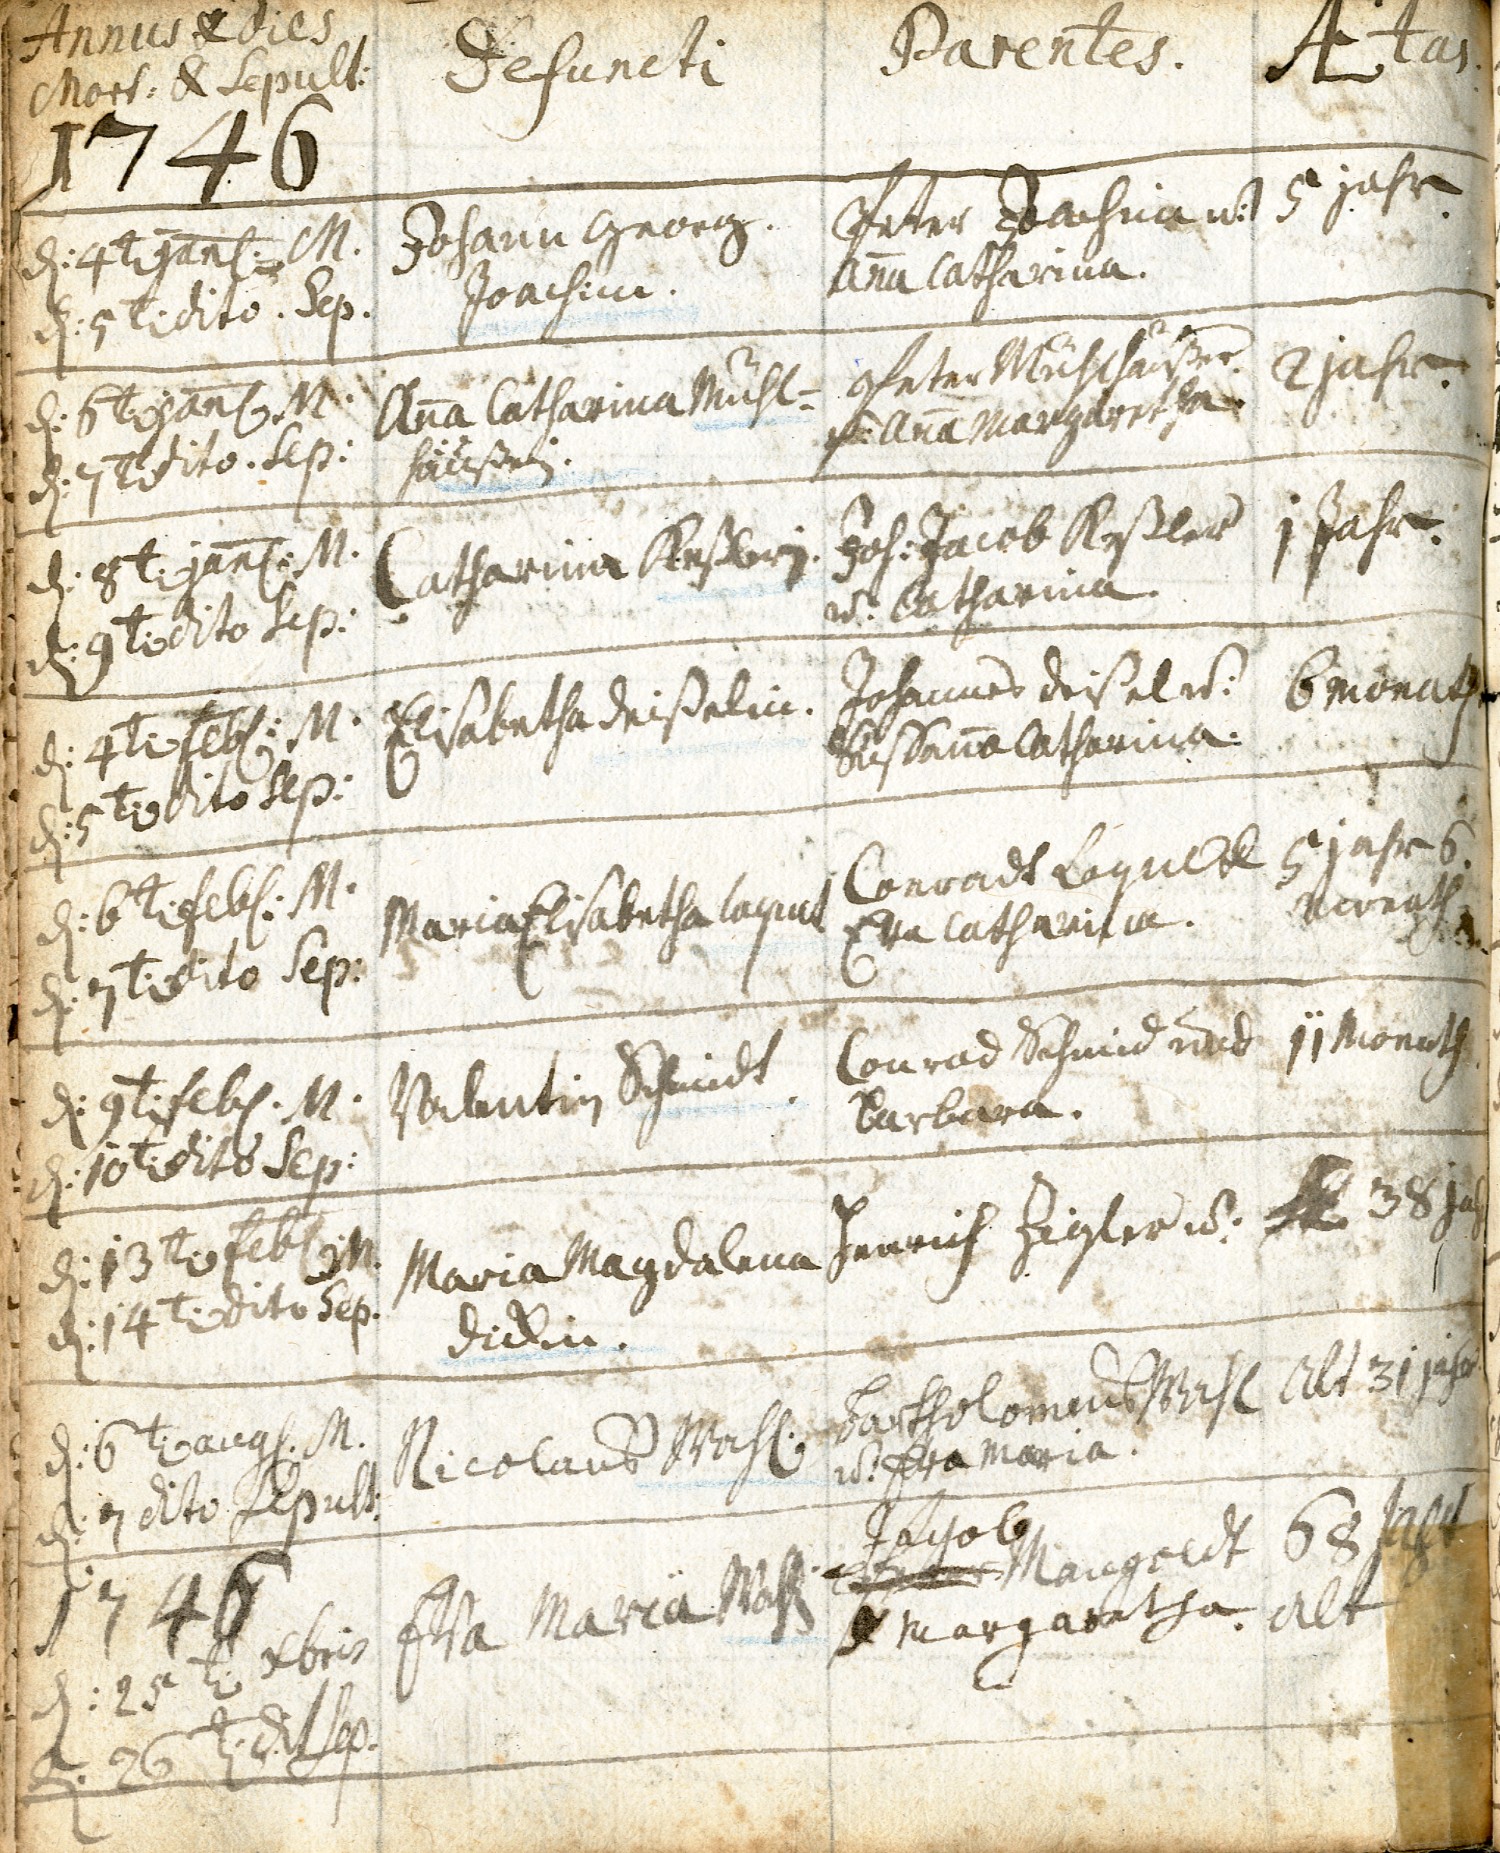 Annus & dies
Mort: & Sepult:
1746
Defuncti
Parentes.
Ætas.
d: 4t: jan: M.
d: 5t: dito. Sep.
Johann Georg
Joachim.
Peter Joachim u:
Aña Catharina.
5 jahr.
d: 6t: jan: M.
d: 7t dito. Sep:
Aña Catharina Mühl=
häußerin.
Peter Mühlhäußer.
u: Aña Margaretha.
2 jahr.
d: 8t: jan: M.
d: 9t: dito Sep:
Catharina Keßlerin.
Joh: Jacob Keßler
u: Catharina.
1 Jahr.
d: 4t: feb: M.
d: 5t: dito Sep:
Elisabetha deißelin.
Johannes deißel u:
Sussaña Catharina.
6 monath
d: 6t: feb: M.
d: 7t: dito Sep:
Maria Elisabetha
Conradt &
Eva Catharina.
5 jahr 6
monath
d: 9t: feb. M.
d: 10t: dito Sep:
Valentin Schmidt.
Conrad Schmid und
barbara.
11 Monath
d: 13t: feb: M.
d: 14t: dito Sep.
Maria Magdalena
dickin.
Henrich Zigler u:
38 jah
d: 6t: aug. M.
d: 7 dito Sepult:
Nicolaus Wahl
Bartholomeus Wahl
u: Eva Maria.
Alt 31 jahr
1746
d: 25t: xbris
d: 26t: dit Sep.
Eva Maria Wahl
Jacob
Mangoldt
& Margaretha.
68 Jahr
Alt